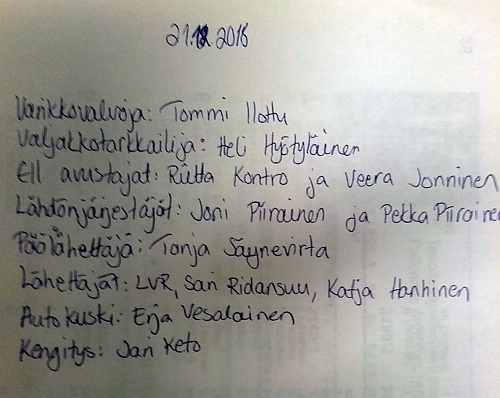 21.12.2015
Varikkovalvoja: Tommi Ilottu
Valjakkotarkkailija: Heli Hyötyläinen
Ell avustajat: Riitta Kontro ja Veera Jonninen
Lähdönjärjestäjät: Joni Piirainen ja Pekka Piirainen
Päälähettäjä: Tanja Säynevirta
Lähettäjät: LVR, Sari Ridansuu, Katja Hanhinen
Autokuski: Erja Vesalainen
Kengitys: Jari Keto